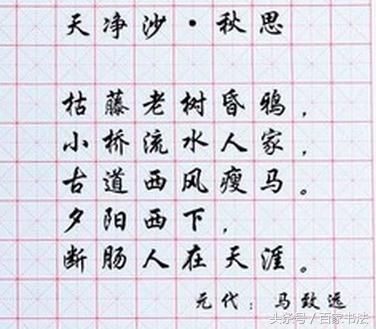 天净沙·秋思
枯藤老树昏鸦，
小桥流水人家，
古道西风瘦马。
夕阳西下，
断肠人在天涯。
元代：马致远
头条号/百家书法